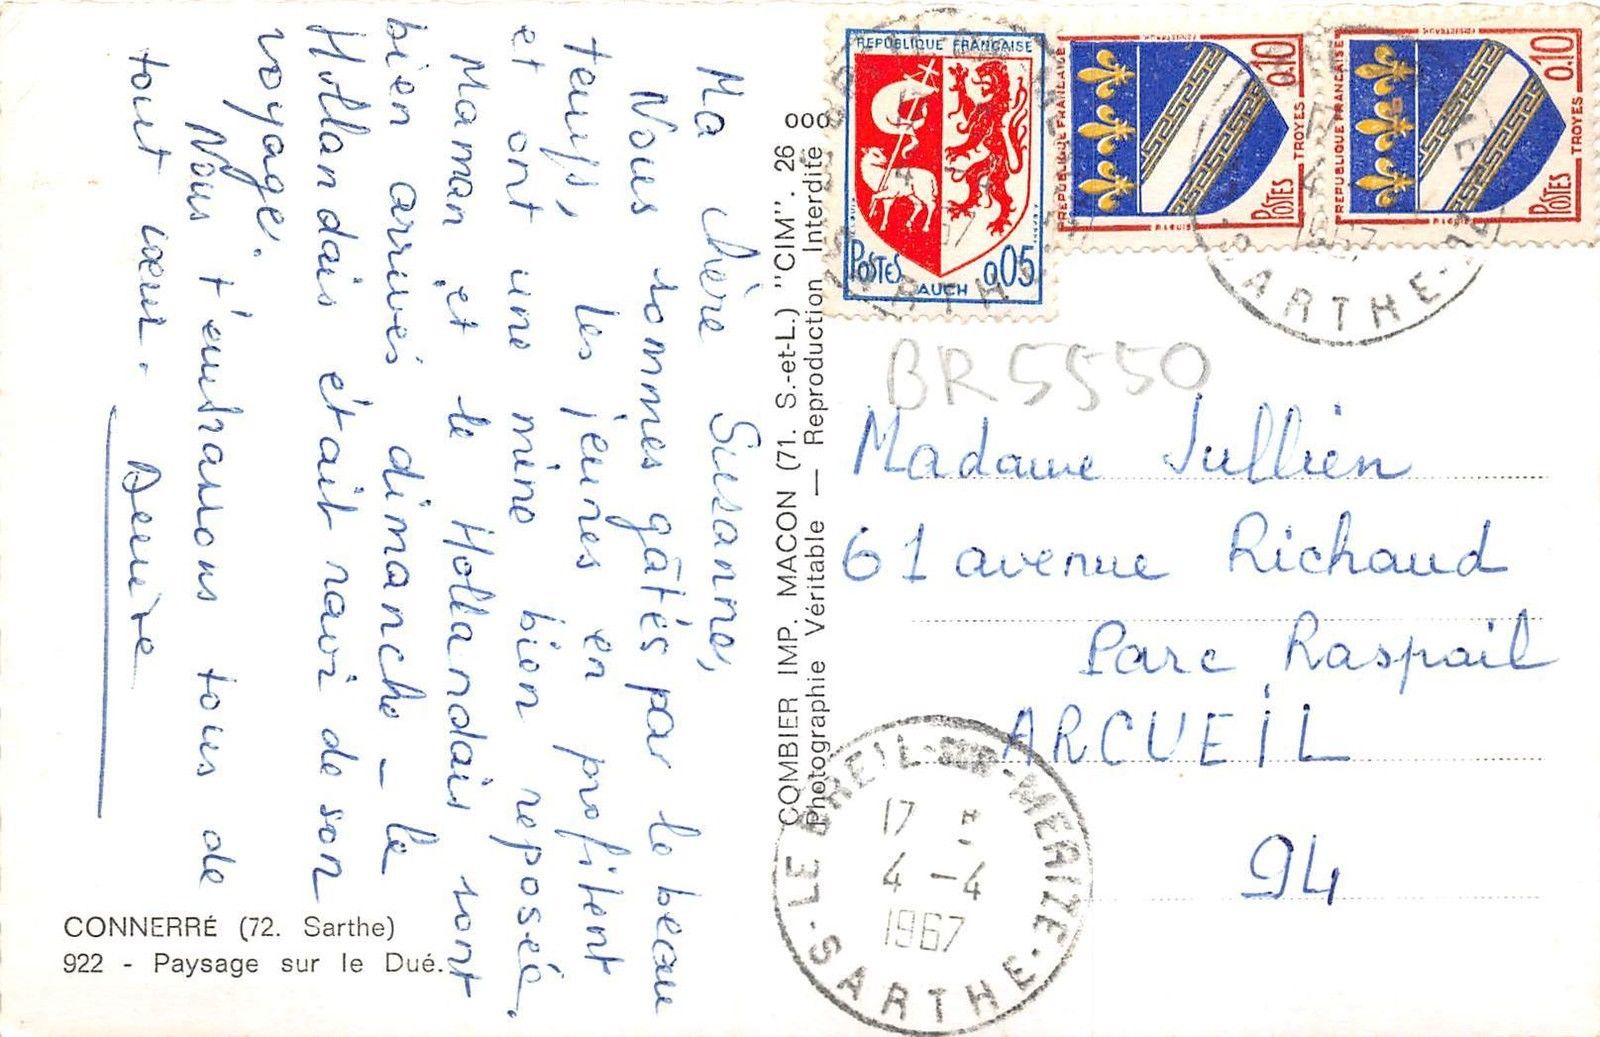 Ma chère Suzanne,
Nous sommes gâtés par le beau
temps, les jeunes en profitent
et ont une mine bien reposée.
Maman et le Hollandais sont
bien arrivés dimanche - le
Hollandais était ravi de son
voyage.
Nous t'embrassons tous de
tout cœur. Denise
CONNERRÉ (72. Sarthe)
922 - Paysage sur le Dué.
COMBIER IMP. MACON (71. S.-et-L.) "CIM". 26 000
Photographie Véritable — Reproduction Interdite
REPUBLIQUE FRANÇAISE
POSTES 0,05
AUCH
REPUBLIQUE FRANÇAISE
0,10
TROYES
POSTES
REPUBLIQUE FRANÇAISE
0,10
TROYES
POSTES
SARTHE
SARTHE
1967
BR5550
Madame Jullien
61 avenue Richaud
Parc Raspail
ARCUEIL
94
LE BREIL-SUR-MERIZE
17 H
4 - 4
1967
SARTHE